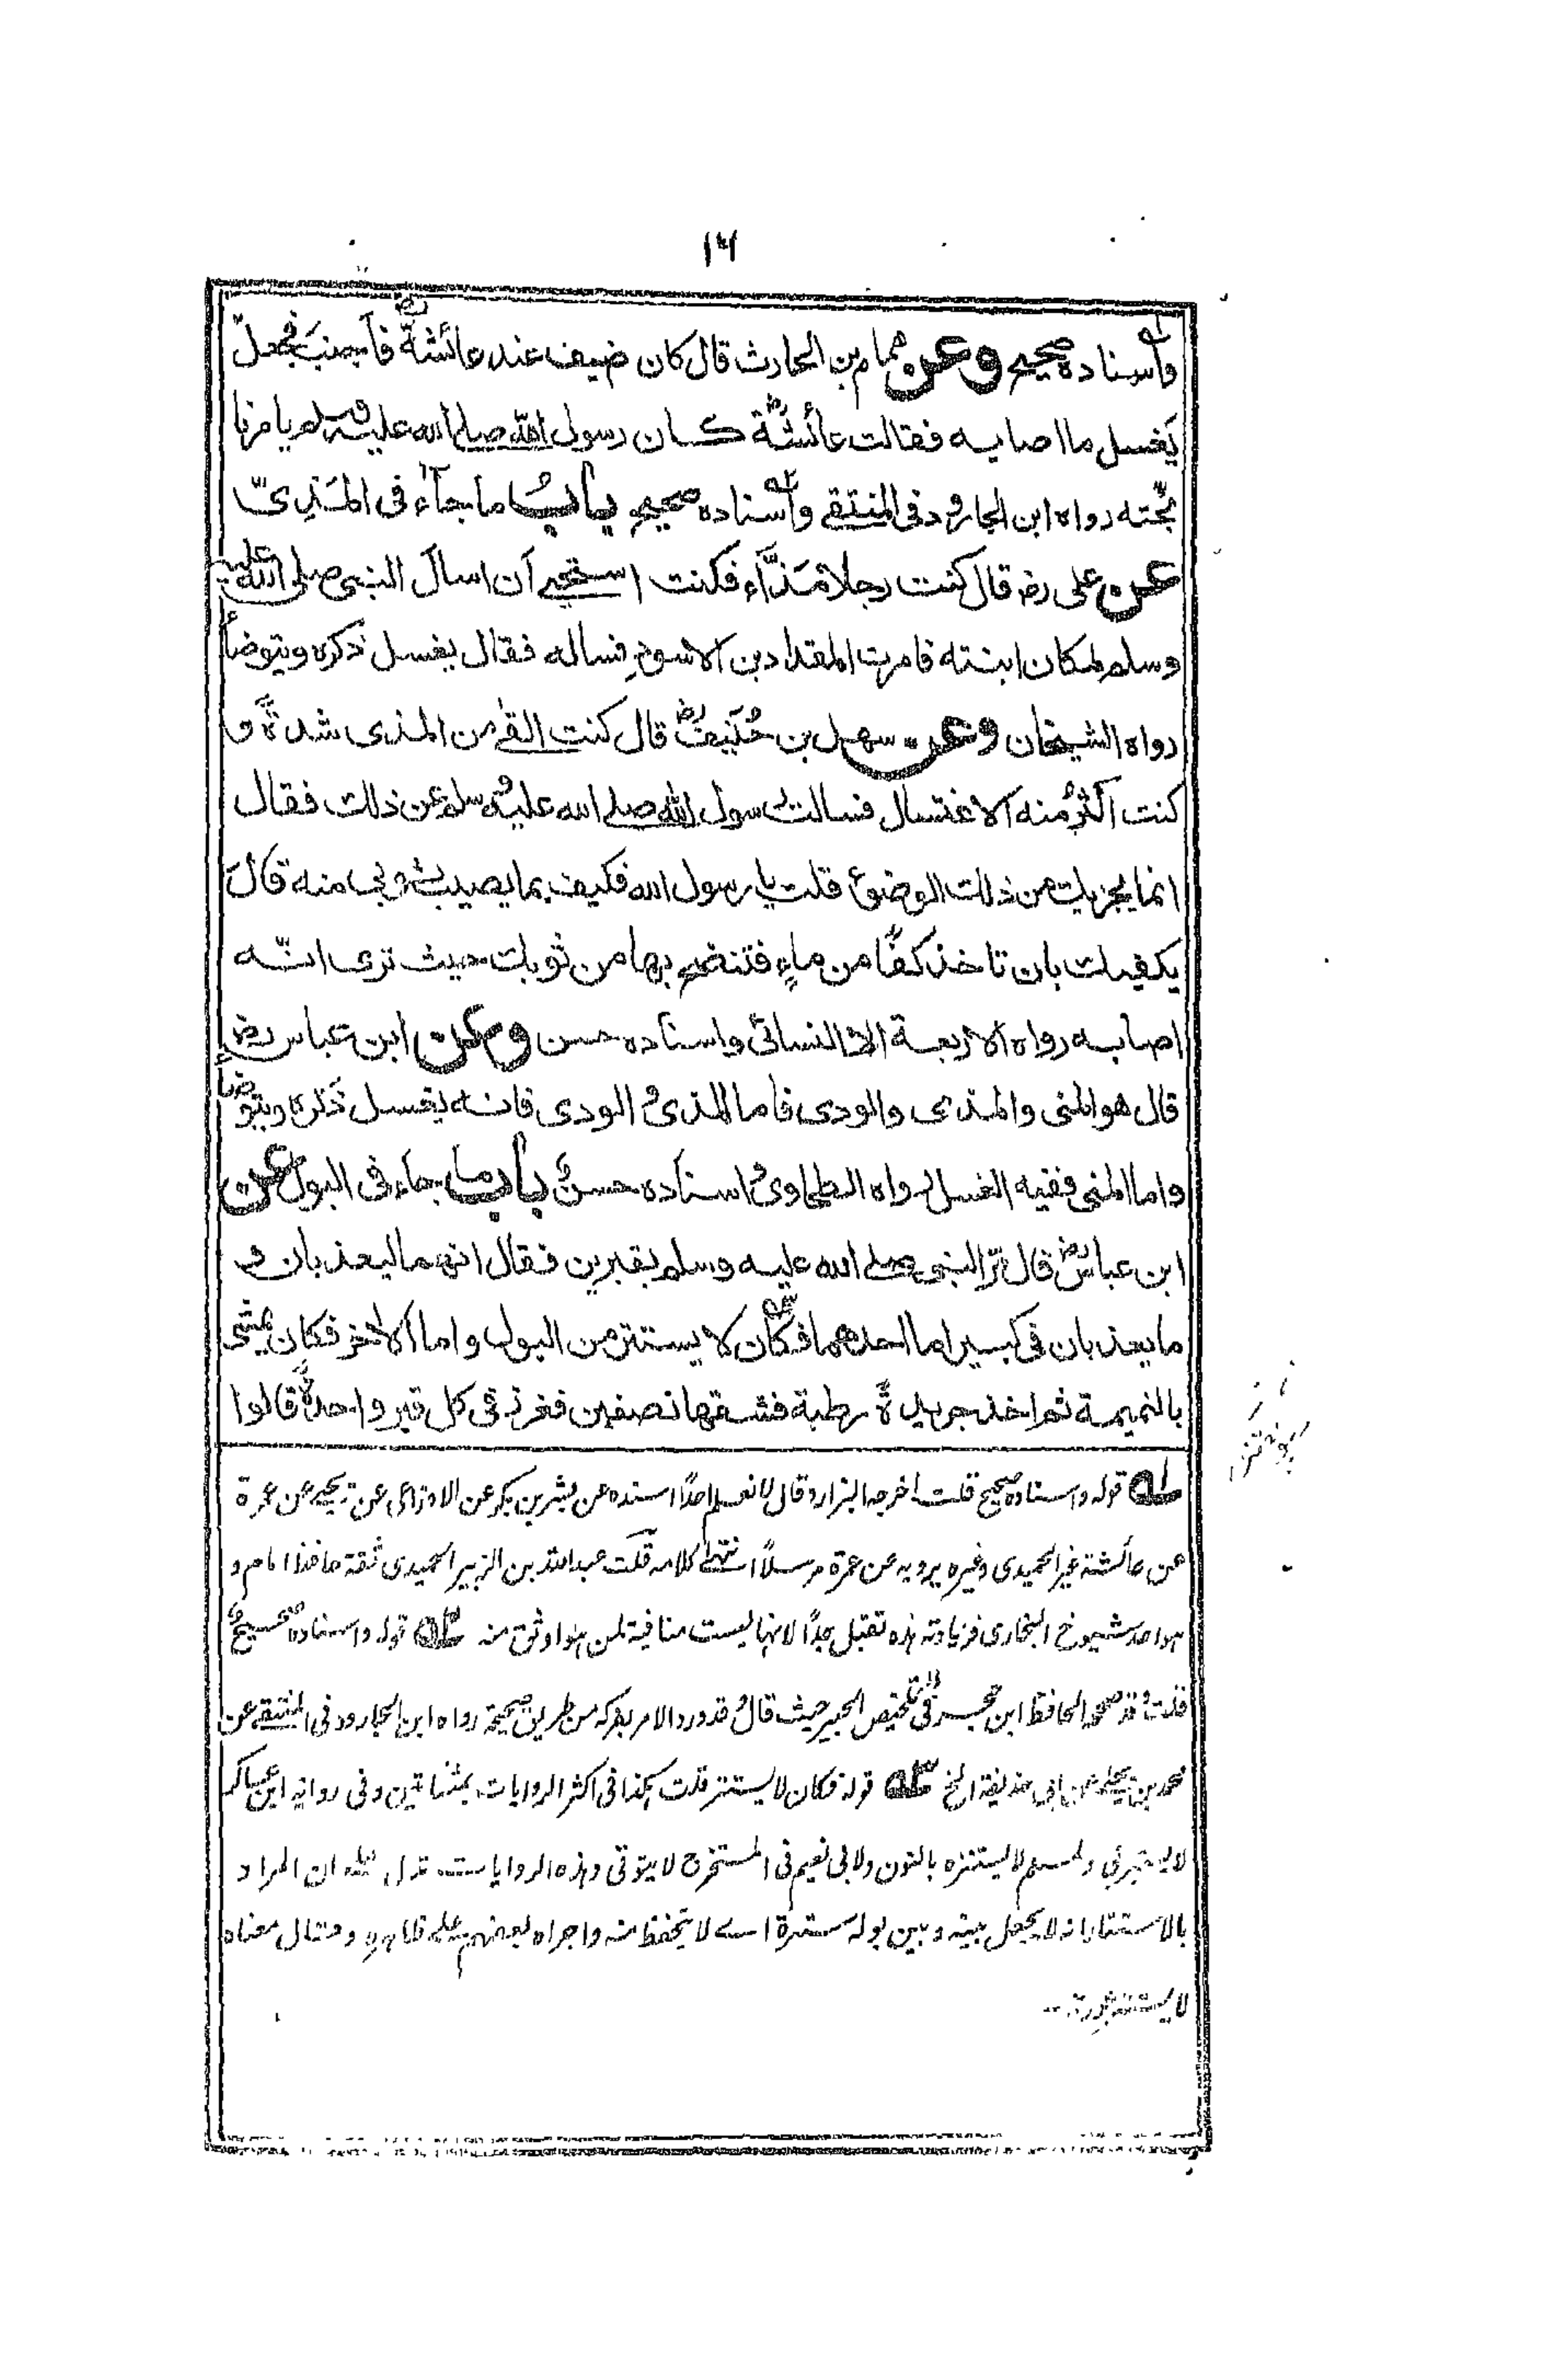 ١٦
واسناده صحيح وعن همام بن الحارث قال كان ضيف عند عائشةؓ فاَجنبَ فجعل
يَغسل ما اصابه فقالت عائشةؓ كان رسول الله صلے الله عليه وسلم يامرنا
بحَتّه رواه ابن الجارود فى المنتقے واسناده صحيح بابُ ما جاء فى المَذِىّ
عن على رضـ قال كنت رجلا مَذّاء فكنت استحيے ان اسال النبى صلى الله عليه
وسلم لمكان ابنته فامرت المقداد بن الاسود فساله فقال يغسل ذكره ويتوضأ
رواه الشيخان وعن سهل بن حُنَيفؓ قال كنت القےٰ من المذى شدةً و
كنت اُكثرُ منه الاغتسال فسالت رسول الله صلے الله عليه وسلم عن ذلك فقال
انما يجزيك من ذلك الوضوء قلت يا رسول الله فكيف بما يصيب ثوبى منه قال
يكفيك بان تاخذ كفًا من ماءٍ فتنضح بها من ثوبك حيث ترى انّه
اصابه رواه الاربعة الا النسائى واسناده حسن وعن ابن عباس رضـ
قال هو المنى والمذى والودى فاما المذى والودى فانه يغسل ذكره ويتوضأ
واما المنى ففيه الغسل رواه الطحاوى واسناده حسنٌ باب ما جاء فى البول عن
ابن عباسؓ قال مرّ النبى صلے الله عليه وسلم بقبرين فقال انهما ليعذبان و
ما يعذبان فى كبير اما احدهما فكان لا يستتر من البول واما الاخر فكان يمشى
بالنميمة ثم اخذ جريدةً رطبة فشقها نصفين فغرز فى كل قبر واحدةً قالوا
لـه قوله واسناده صحيح قلت اخرجه البزار وقال لا نعلم احدًا اسنده عن بشر بن بكر عن الاوزاعى عن يحيے عن عمرة
عن عائشة غير الحميدى وغيره يرويه عن عمرة مرسلًا انتهےٰ كلامه قلت عبد الله بن الزبير الحميدى ثقة حافظ امام و
هو احد شيوخ البخارى فزيادته هذه تقبل جدًا لانها ليست منافية لمن هو اوثق منه ٢ـه قوله واسناده صحيح
قلت وقد صححه الحافظ ابن حجر فى تلخيص الحبير حيث قال وقد ورد الامر بفركه من طريق صحيحة رواه ابن الجارود فى المنتقے عن
محمد بن يحيے عن ابى حذيفة الخ ٣ـه قوله فكان لا يستتر قلت كذا فى اكثر الروايات بمثناتين وفى رواية ابن عساكر
لا يستبرئ ولمسلم لا يستنزه بالنون ولابى نعيم فى المستخرج لا يتوقى وهذه الروايات تدل علے ان المراد
بالاستتار انه لا يجعل بينه وبين بوله سترة اے لا يتحفظ منه واجراه بعضهم علے ظاهره وقال معناه
لا يستتر عورته ــ